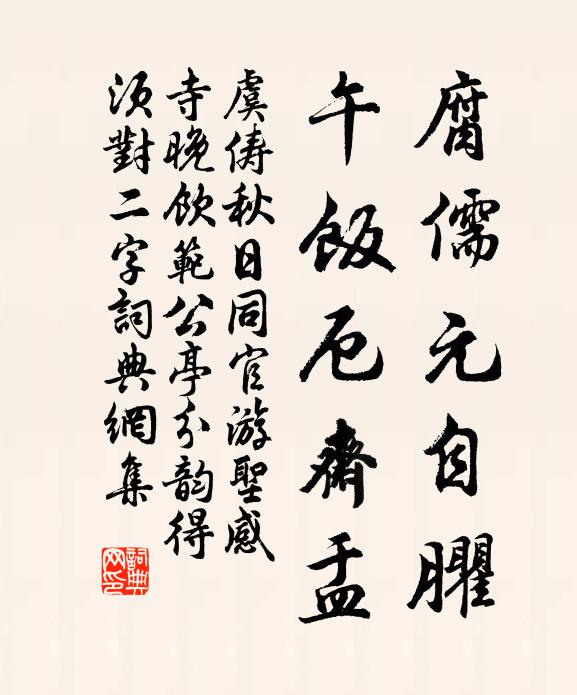 腐儒元自臞
午飯厄齋盂
虞儔秋日同官游聖感
寺晚飲範公亭分韵得
須對二字詞典網集
詞典
网印